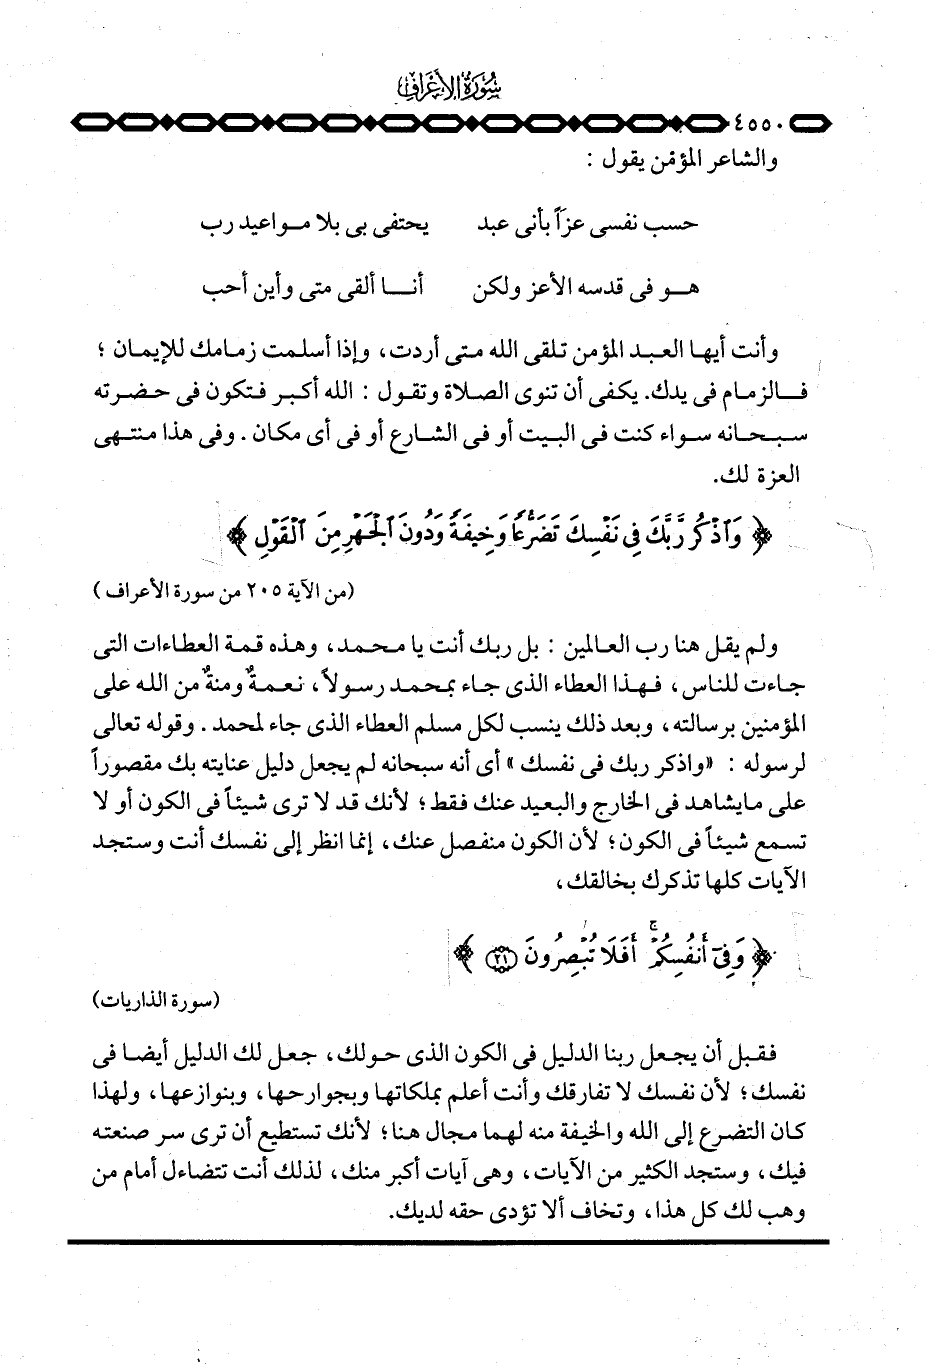 سورة الأعراف
٤٥٥٠
والشاعر المؤمن يقول :
حسب نفسى عزاً بأنى عبد يحتفى بى بلا مـواعيد رب
هـو فى قدسه الأعز ولكن أنـا ألقى متى وأين أحب
وأنت أيها العبد المؤمن تلقى الله متى أردت، وإذا أسلمت زمامك للإيمان ؛
فالزمام فى يدك. يكفى أن تنوى الصلاة وتقول : الله أكبر فتكون فى حضرته
سبحانه سواء كنت فى البيت أو فى الشارع أو فى أى مكان . وفى هذا منتهى
العزة لك.
﴿ وَٱذْكُر رَّبَّكَ فِى نَفْسِكَ تَضَرُّعًا وَخِيفَةً وَدُونَ ٱلْجَهْرِ مِنَ ٱلْقَوْلِ ﴾
(من الآية ٢٠٥ من سورة الأعراف )
ولم يقل هنا رب العالمين : بل ربك أنت يا محمد، وهذه قمة العطاءات التى
جاءت للناس، فهذا العطاء الذى جاء بمحمد رسولاً، نعمةٌ ومنةٌ من الله على
المؤمنين برسالته، وبعد ذلك ينسب لكل مسلم العطاء الذى جاء لمحمد . وقوله تعالى
لرسوله : «واذكر ربك فى نفسك » أى أنه سبحانه لم يجعل دليل عنايته بك مقصوراً
على مايشاهد فى الخارج والبعيد عنك فقط؛ لأنك قد لا ترى شيئاً فى الكون أو لا
تسمع شيئاً فى الكون؛ لأن الكون منفصل عنك، إنما انظر إلى نفسك أنت وستجد
الآيات كلها تذكرك بخالقك،
﴿ وَفِىٓ أَنفُسِكُمْ ۚ أَفَلَا تُبْصِرُونَ ٢١ ﴾
(سورة الذاريات)
فقبل أن يجعل ربنا الدليل فى الكون الذى حولك، جعل لك الدليل أيضا فى
نفسك؛ لأن نفسك لا تفارقك وأنت أعلم بملكاتها وبجوارحها، وبنوازعها، ولهذا
كان التضرع إلى الله والخيفة منه لهما مجال هنا؛ لأنك تستطيع أن ترى سر صنعته
فيك، وستجد الكثير من الآيات، وهى آيات أكبر منك، لذلك أنت تتضاءل أمام من
وهب لك كل هذا، وتخاف ألا تؤدى حقه لديك.